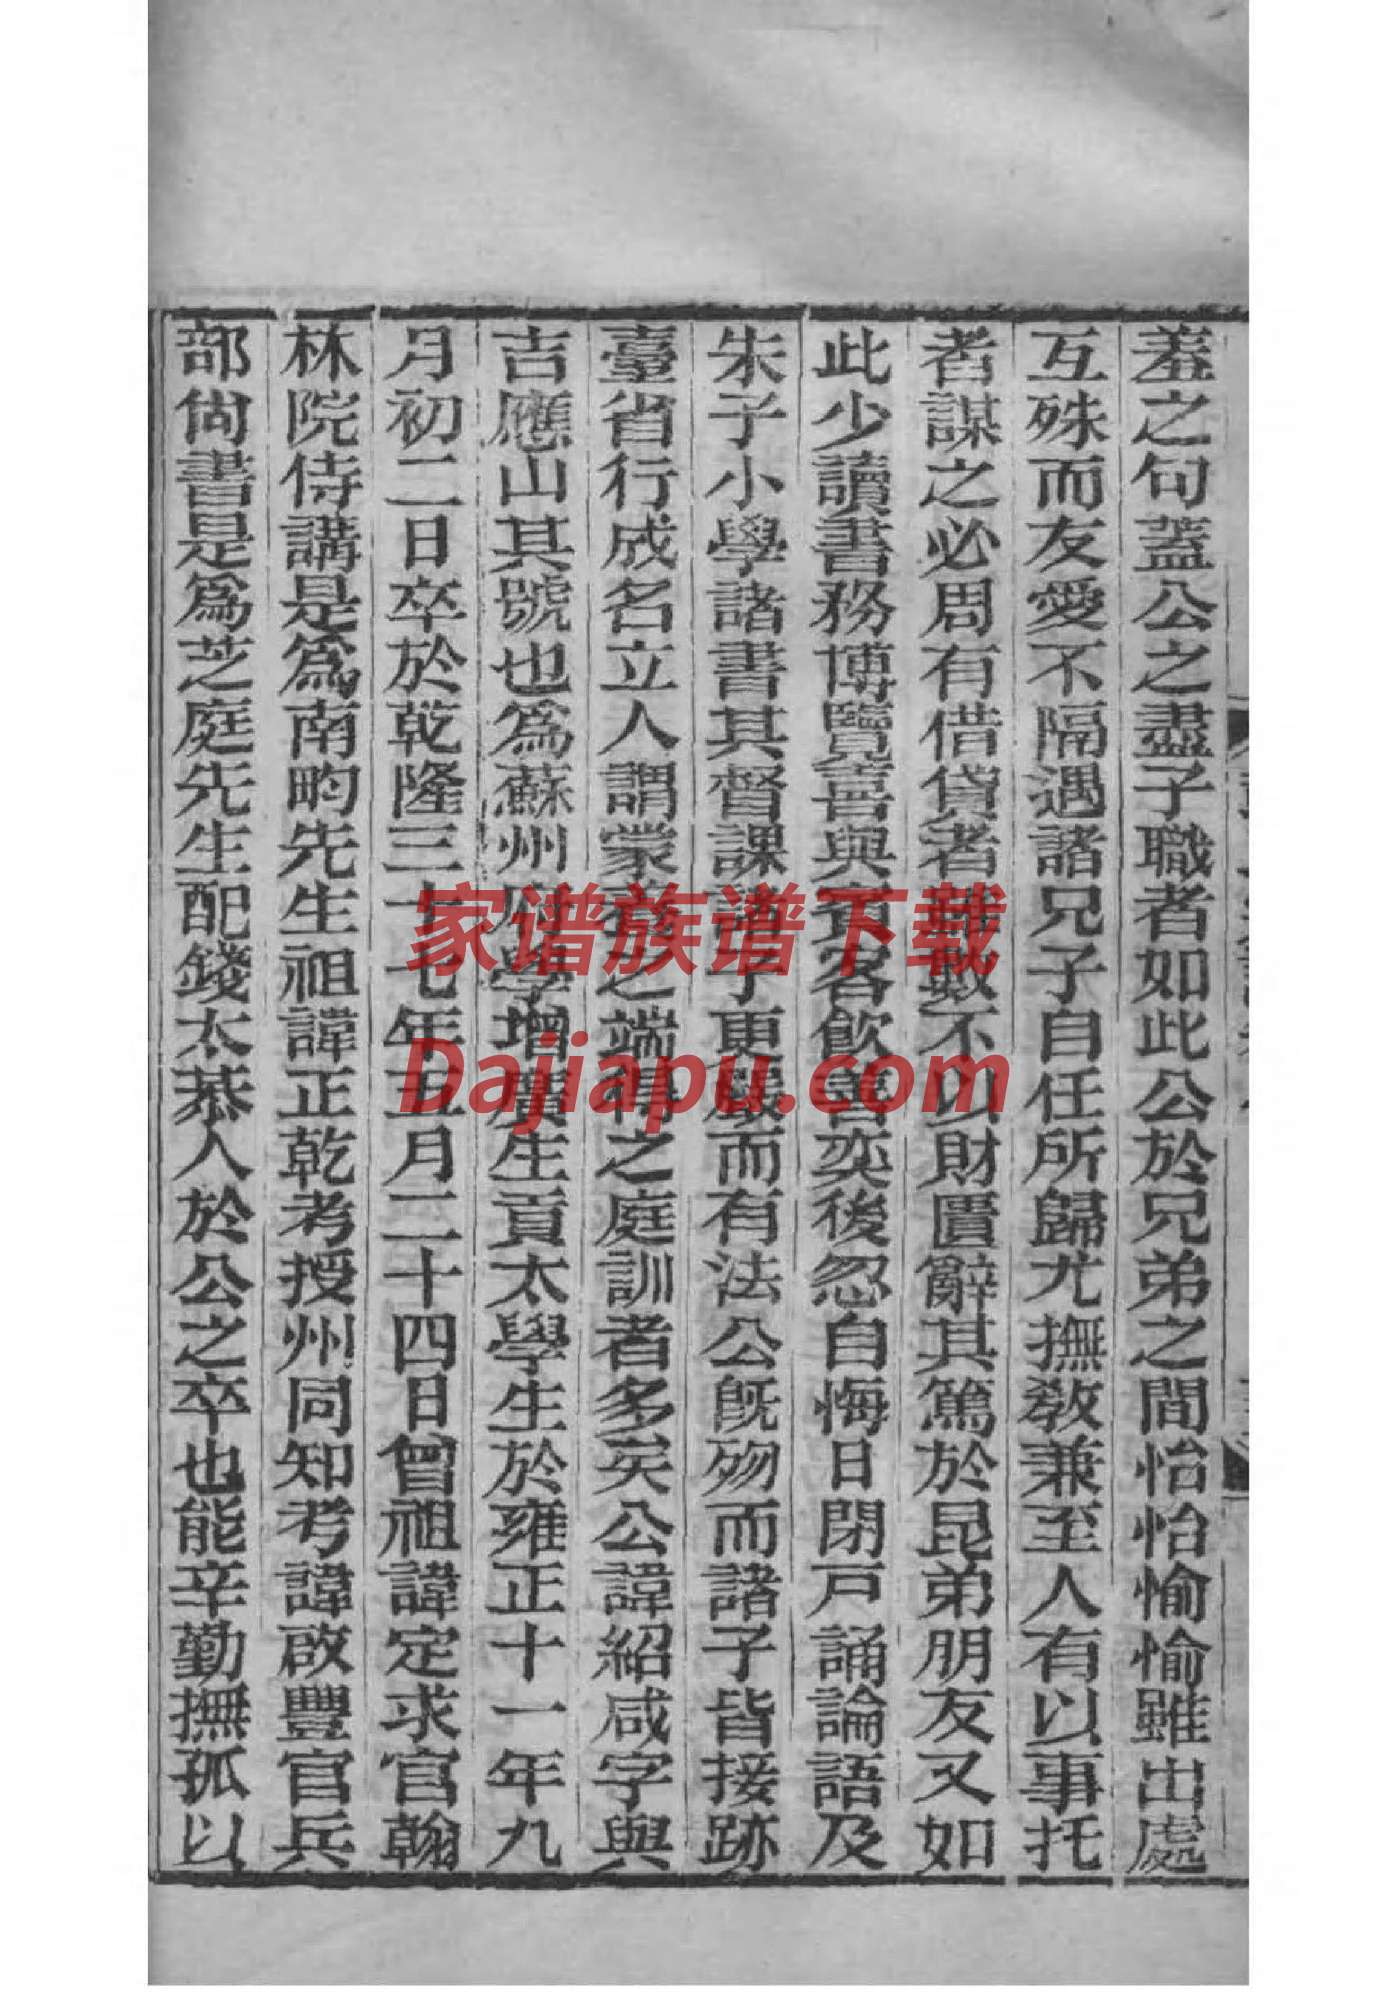 羞之句蓋公之盡子職者如此公於兄弟之間怡怡愉愉雖出處
互殊而友愛不隔遇諸兄子自任所歸尤撫教兼至人有以事托
者謀之必周有借貸者雖數不以財匱辭其篤於昆弟朋友又如
此少讀書務博覽喜與賓客飲善奕後忽自悔日閉戸誦論語及
朱子小學諸書其督課諸子更嚴而有法公既歿而諸子皆接跡
臺省行成名立人謂蒙養之端得之庭訓者多矣公諱紹咸字與
吉應山其號也為蘇州府學增廣生貢太學生於雍正十一年九
月初二日卒於乾隆三十七年五月二十四日曾祖諱定求官翰
林院侍講是為南畇先生祖諱正乾考授州同知考諱啟豐官兵
部尙書是為芝庭先生配錢太恭人於公之卒也能辛勤撫孤以
家谱族谱下载
Dajiapu.com